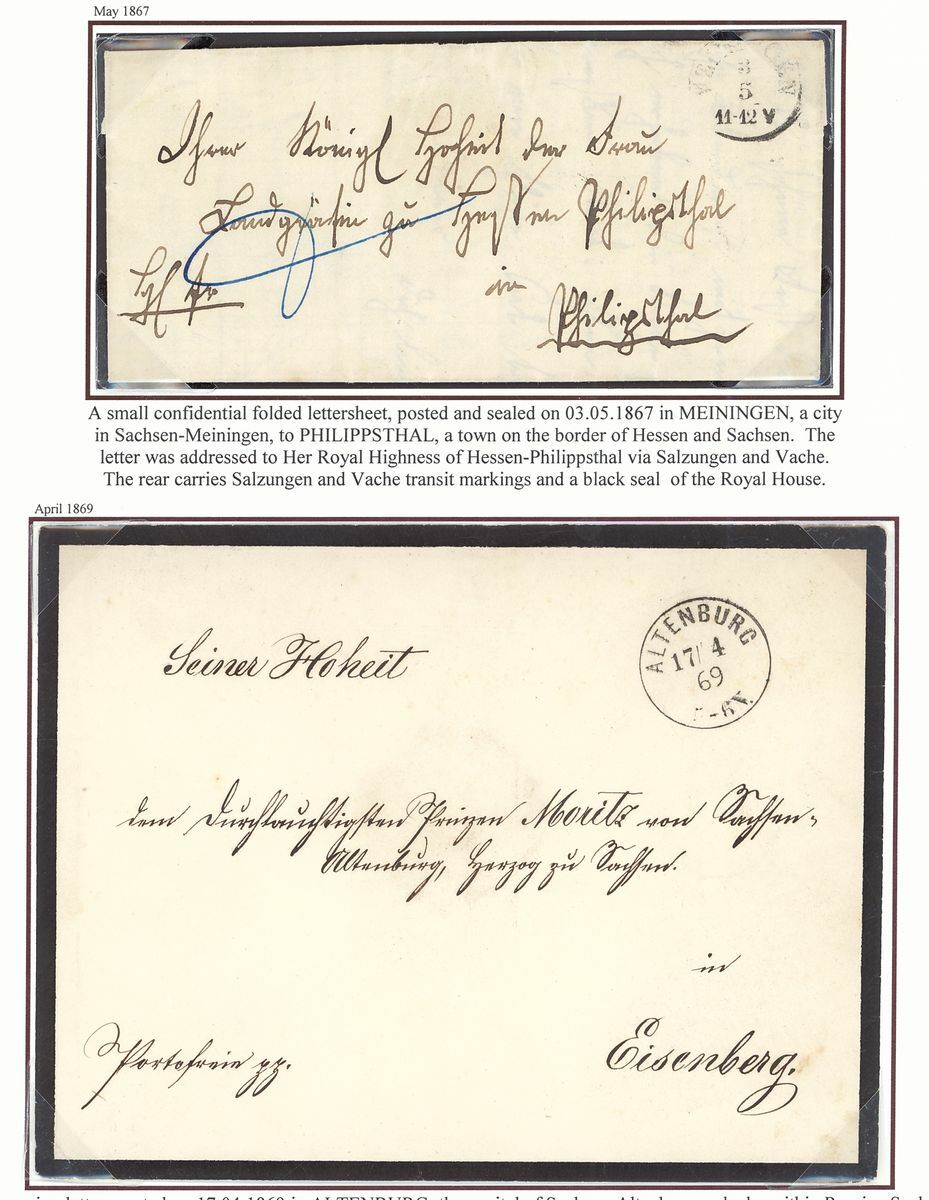 May 1867
3
5
11-12 V
Ihrer Königl Hoheit der Frau
Landgräfin zu Hessen Philipsthal
in
Philipsthal
A small confidential folded lettersheet, posted and sealed on 03.05.1867 in MEININGEN, a city
in Sachsen-Meiningen, to PHILIPPSTHAL, a town on the border of Hessen and Sachsen. The
letter was addressed to Her Royal Highness of Hessen-Philippsthal via Salzungen and Vache.
The rear carries Salzungen and Vache transit markings and a black seal of the Royal House.
April 1869
ALTENBURG
17 4
69
-6 N.
Seiner Hoheit
dem Durchlauchtigsten Prinzen Moritz von Sachsen-
Altenburg, Herzog zu Sachsen.
in
Eisenberg.
Portofreie pp.